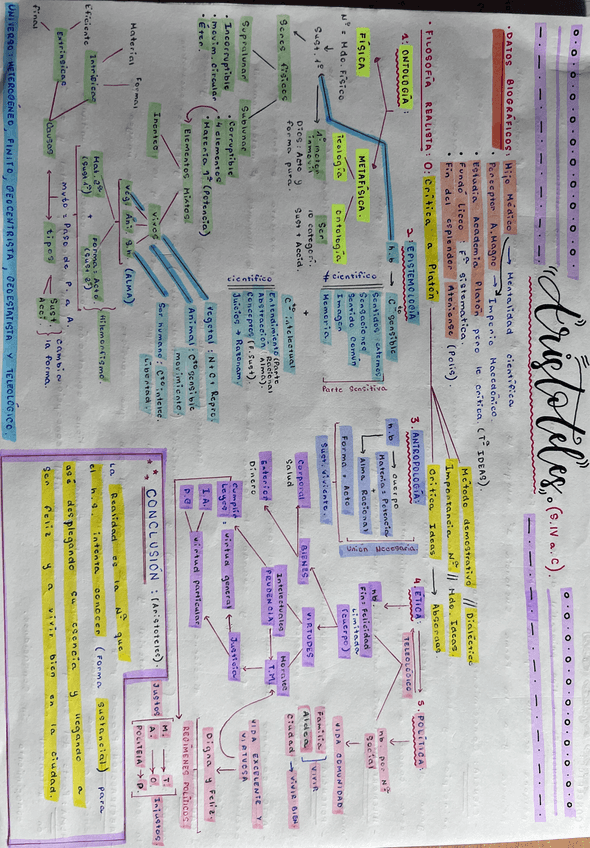 Aristóteles. (S. IV a. C).
• DATOS BIOGRÁFICOS: Hijo Médico → Mentalidad científica
Preceptor A. Magno → Imperio Macedónico.
Estudia Academia Platón pero le critica. (Tª IDEAS).
Fundó Liceo: Fª sistemática.
Fin del esplendor Ateniense (Polis).
• FILOSOFÍA REALISTA: Crítica a Platón
Método demostrativo // Dialéctica
Importancia Nª // Mdo. Ideas
Crítica Ideas → Absurdas
1. ONTOLOGÍA:
FÍSICA
METAFÍSICA
Nª = Mdo. Físico
Sust. 1ª
Teología
Ontología
1º motor inmóvil
Dios: Acto y forma pura.
Ser
10 categorí.
Sust + Accid.
Seres físicos
Supralunar
Sublunar
• Incorruptible
• movim. circular
• Éter.
• Corruptible
• 4 elementos
• Materia 1ª (Potencia)
Elementos
Mixtos
Inertes
Vivos
Veg. Ani. S.h. (ALMA)
Mat. 2ª (Sust. 2ª) + Forma: Acto (Sust. 2ª)
Hilemorfismo
Material
Formal
Eficiente
Intrínsecas
Final
Extrínsecas
Causas
Mvto = Paso de P. a A.
tipos
Sust.
Acci.
cambio la forma
UNIVERSO: HETEROGÉNEO, FINITO, GEOCENTRISTA, GEOESTATISTA Y TELEOLÓGICO
2. EPISTEMOLOGÍA
h.b → Cto sensible
Sentidos externos
Sensaciones
Sentido común
Imagen
Memoria
Parte Sensitiva
≠ científico
+
científico
Cto intelectual
Entendimiento (Parte Racional Alma).
Abstracción
Conceptos (F. Sust).
Juicios + Razonam.
Vegetal: N + C + Repro.
Animal: Cto sensible movimiento.
Ser humano: Cto intelec. libertad
3. ANTROPOLOGÍA:
h.b → Cuerpo
Materia = Potencia
Alma Racional
Forma = Acto
Sust. viviente.
Unión Necesaria
4. ÉTICA:
TELEOLÓGICO
nb
Fin felicidad
Limitada
(cuerpo)
BIENES
VIRTUDES
Corporal
Salud
Exterior
Dinero
Intelectuales
PRUDENCIA
Morales
T.M.
Justicia
Cumplir Leyes: virtud general
I.A.
D.C
virtud particular
5. POLÍTICA:
nb por Nª Social
VIDA COMUNIDAD
Familia
Aldea
VIVIR
Ciudad → VIVIR BIEN.
VIDA EXCELENTE Y VIRTUOSA
Digna y Feliz
REGÍMENES POLÍTICOS:
Justos
M. → T.
A. → O.
POLITEIA → D
Injustos
* CONCLUSIÓN: (Aristóteles).
La Realidad es la Nª que
el h.s. intenta conocer (forma sustancial) para
así desplegando su esencia y llegando a
ser feliz y a vivir bien en la ciudad.